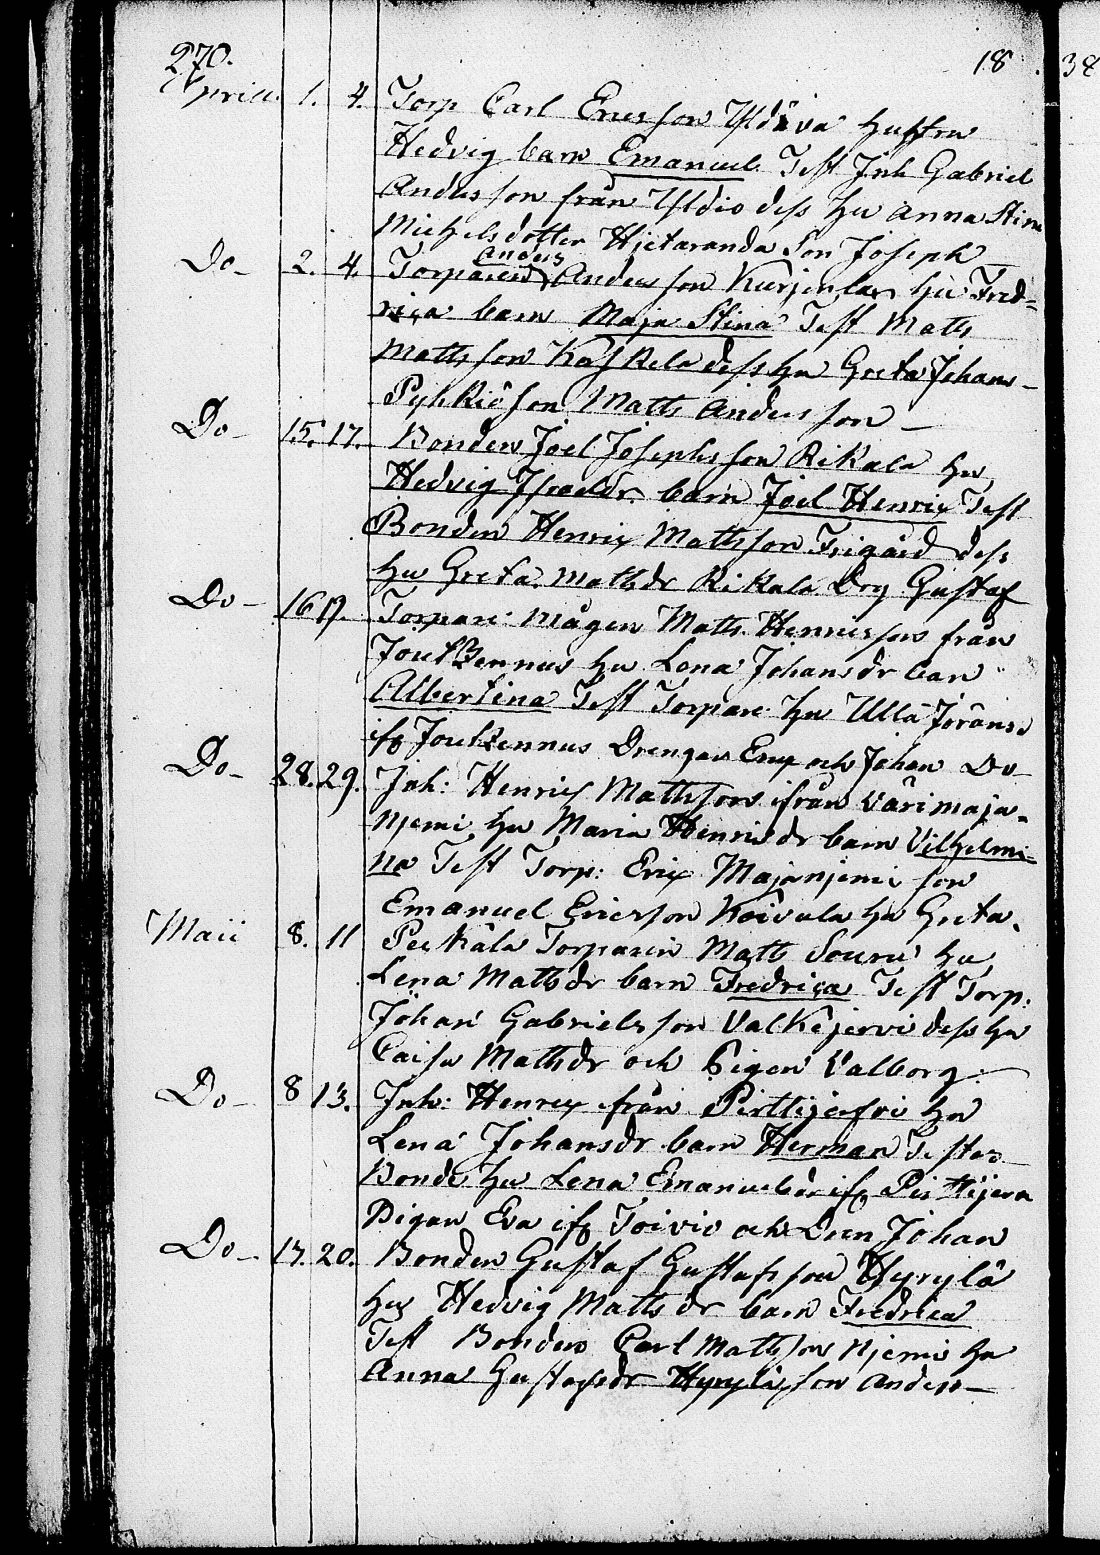 270. 18 38
Aprill 1. 4. Torp Carl Ericsson hustru
Hedvig barn Emanuel Test Inh Gabriel
Andersson från dess hu Anna Stina
Michelsdotter Hjetaranda Son Joseph
Do 2. 4. Torparen Anders Andersson Kurjenlax hu Fred=
rica barn Maja Stina Test Matts
Mattsson Kaskela dess hu Greta Johans
Pyhkiö son Matts Andersson
Do 15. 17. Bonden Joel Josephsson Rikala hu
Hedvig Israeldr barn Joel Henrix Test
Bonden Henrix Mattsson Frigård dess
hu Greta Matsdr Rikala Drg Gustaf
Do 16 17. Torpare mågen Matts Henricsson från
Joukbennus hu Lena Johansdr barn
Albertina Test Torpare hu Ulla Jöransd
ifr Drengar Erix och Johan Do
Do 28. 29. Inh: Henrix Mattsson ifrån Värimaja=
njemi, hu Maria Henrisdr barn Vilhelmi=
na Test Torp: Erix Majanjemi son
Emanuel Ericsson Koivula hu Greta
Maii 8. 11 Peekälä Torparen Matts Souru hu
Lena Mattsdr barn Fredrica Test Torp:
Johan Gabrielsson Valkejervi dess hu
Caisa Mattsdr och Pigen Valborg
Do 8 13. Inh: Henrix från hu
Lena Johansdr barn Herman Testes
Bonde hu Lena Emanuelsdr ifr
Pigan Eva ifr Toivio och Dren Johan
Do 17. 20. Bonden Gustaf Gustafsson Hyrylä
hu Hedvig Mattsdr barn Fredrica
Test Bonden Carl Mattsson Njemi hu
Anna Gustafsdr Hyrylä son Anders